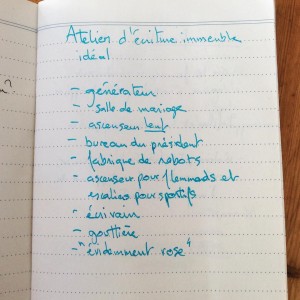 Atelier d'écriture immeuble
idéal
- générateur
- salle de mariage
- ascenseur lent
- bureau du président
- fabrique de robots
- ascenseur pour flemmards et
escalier pour sportifs
- écrivain
- gouttière
- "évidemment rose"